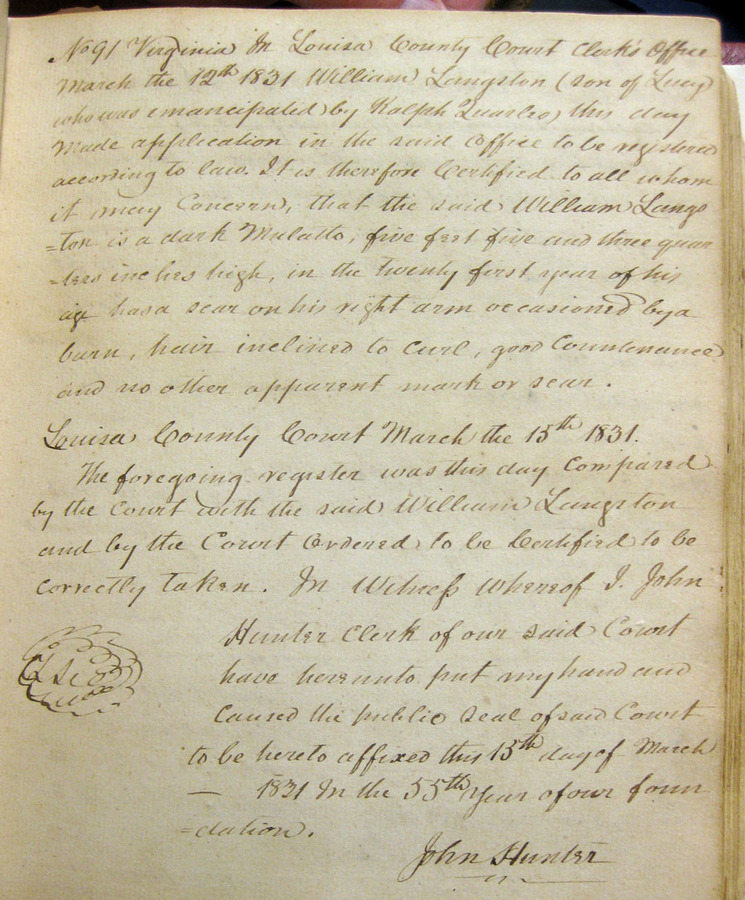 No 91 Virginia In Louisa County Court Clerk's Office
March the 12th 1831 William Langston (son of Lucy
who was emancipated by Ralph Quarles) this day
Made application in the said Office to be registered
according to law. It is therefore Certified to all whom
it may Concern, that the said William Langs
=ton is a dark Mulatto, five feet five and three quar
=ters inches high, in the twenty first year of his
age has a scar on his right arm occasioned by a
burn, hair inclined to Curl, good Countenance
and no other apparent mark or scar.
Louisa County Court March the 15th 1831.
The foregoing register was this day Compared
by the Court with the said William Langston
and by the Court Ordered to be Certified to be
Correctly taken. In Witness whereof I. John
Hunter Clerk of our said Court
have hereunto put my hand and
Caused the public Seal of said Court
to be hereto affixed this 15th day of March
— 1831 In the 55th Year of our foun
=dation.
John Hunter